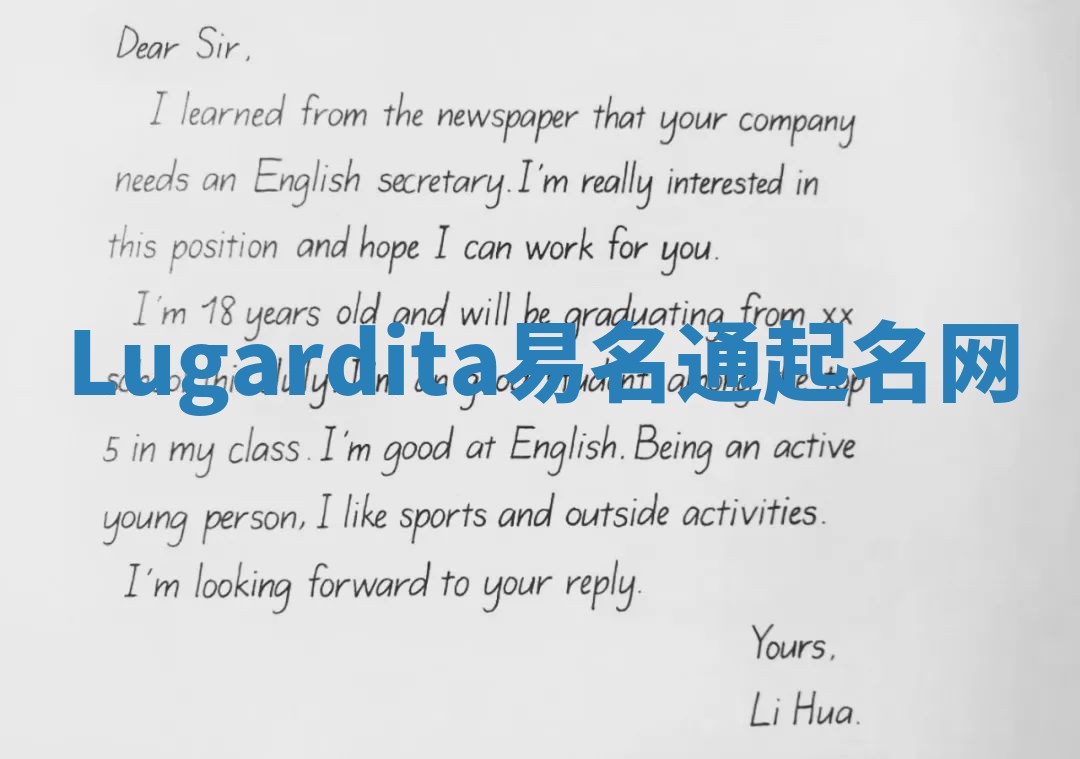 Dear Sir,
I learned from the newspaper that your company
needs an English secretary. I'm really interested in
this position and hope I can work for you.
I'm 18 years old and will be graduating from xx
Lugardita易名通起名网
school this July. I'm a good student among the top
5 in my class. I'm good at English. Being an active
young person, I like sports and outside activities.
I'm looking forward to your reply.
Yours,
Li Hua.